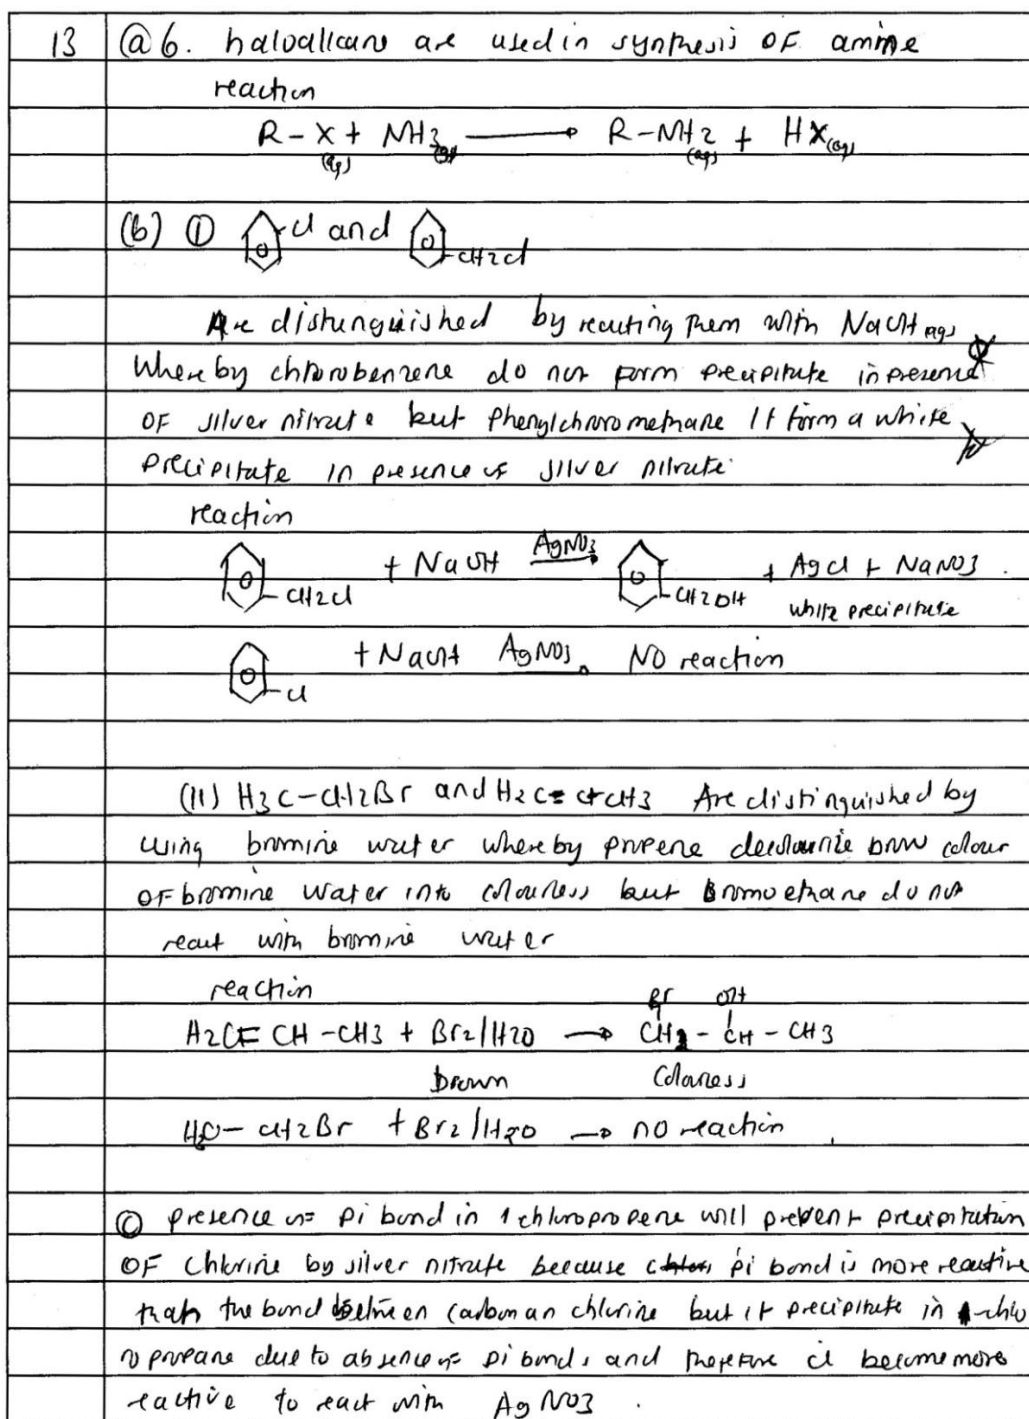 13 @ 6. haloalkane are used in synthesis OF amine
reaction
R - X(aq) + NH3(g) → R-NH2(aq) + HX(aq)
(b) (i) Cl and CH2Cl
Are distunguished by reacting them with NaOH(aq)
Where by chlorobenzene do not form precipitate in presence
OF silver nitrate but phenylchloromethane It form a white
precipitate in presence of silver nitrate.
reaction
CH2Cl + NaOH AgNO3 → CH2OH + AgCl + NaNO3.
white precipitate
Cl + NaOH AgNO3 → NO reaction
(11) H3C-CH2Br and H2C=CHCH3 Are distinguished by
using bromine water whereby propene decolourize brown colour
OF bromine water into colourless but Bromoethane do not
react with bromine water
reaction
Br OH
H2C=CH-CH3 + Br2/H2O → CH2-CH-CH3
brown Colourless
CH2Br + Br2/H2O → no reaction
(c) presence of pi bond in 1 chloropropene will prevent precipitation
OF Chlorine by silver nitrate because pi bond is more reactive
than the bond between carbon an chlorine but it precipitate in 1-chlo
ropropane due to absence of pi bond, and therefore cl become more
reactive to react with AgNO3.